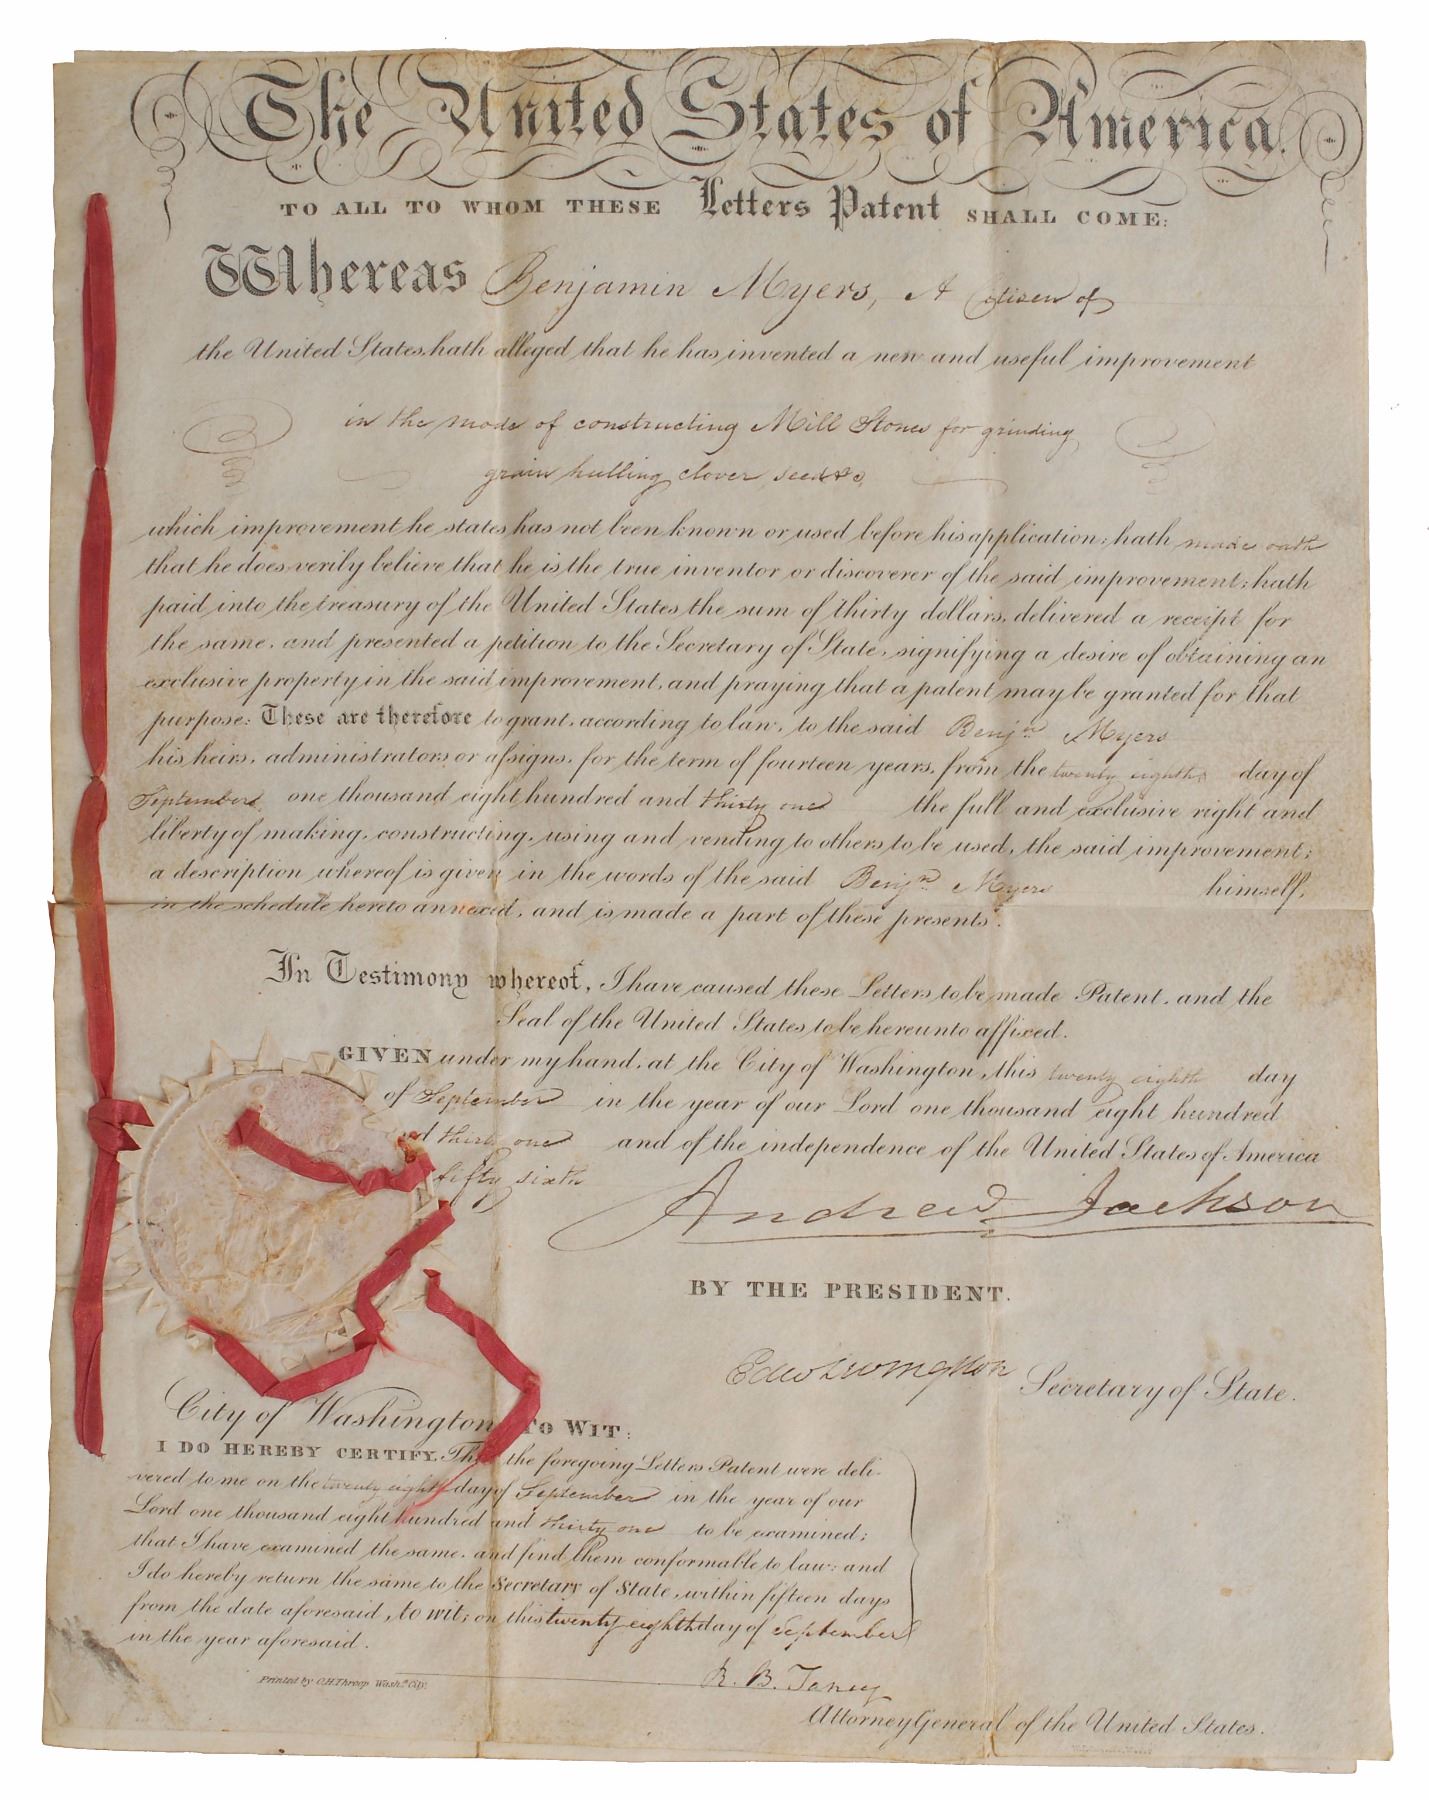 The United States of America.
TO ALL TO WHOM THESE Letters Patent SHALL COME:
Whereas Benjamin Myers, A Citizen of
the United States, hath alleged that he has invented a new and useful improvement
in the mode of constructing Mill Stones for grinding
grain hulling clover seed &c
which improvement he states has not been known or used before his application; hath made oath
that he does verily believe that he is the true inventor or discoverer of the said improvement; hath
paid into the treasury of the United States the sum of thirty dollars, delivered a receipt for
the same, and presented a petition to the Secretary of State, signifying a desire of obtaining an
exclusive property in the said improvement, and praying that a patent may be granted for that
purpose: These are therefore to grant, according to law, to the said Benjn Myers
his heirs, administrators or assigns, for the term of fourteen years, from the twenty eighth day of
September one thousand eight hundred and thirty one the full and exclusive right and
liberty of making, constructing, using and vending to others to be used, the said improvement;
a description whereof is given in the words of the said Benjn Myers himself,
in the schedule hereto annexed, and is made a part of these presents.
In Testimony whereof, I have caused these Letters to be made Patent, and the
Seal of the United States to be hereunto affixed.
GIVEN under my hand, at the City of Washington, this twenty eighth day
of September in the year of our Lord one thousand eight hundred
thirty one and of the independence of the United States of America
fifty sixth
Andrew Jackson
BY THE PRESIDENT.
Edw Livingston Secretary of State.
City of Washington TO WIT:
I DO HEREBY CERTIFY, That the foregoing Letters Patent were deli-
vered to me on the twenty eighth day of September in the year of our
Lord one thousand eight hundred and thirty one to be examined;
that I have examined the same, and find them conformable to law: and
I do hereby return the same to the Secretary of State, within fifteen days
from the date aforesaid, to wit; on this twenty eighth day of September
in the year aforesaid.
Printed by O.H. Throop Wash.n City.
R. B. Taney
Attorney General of the United States.